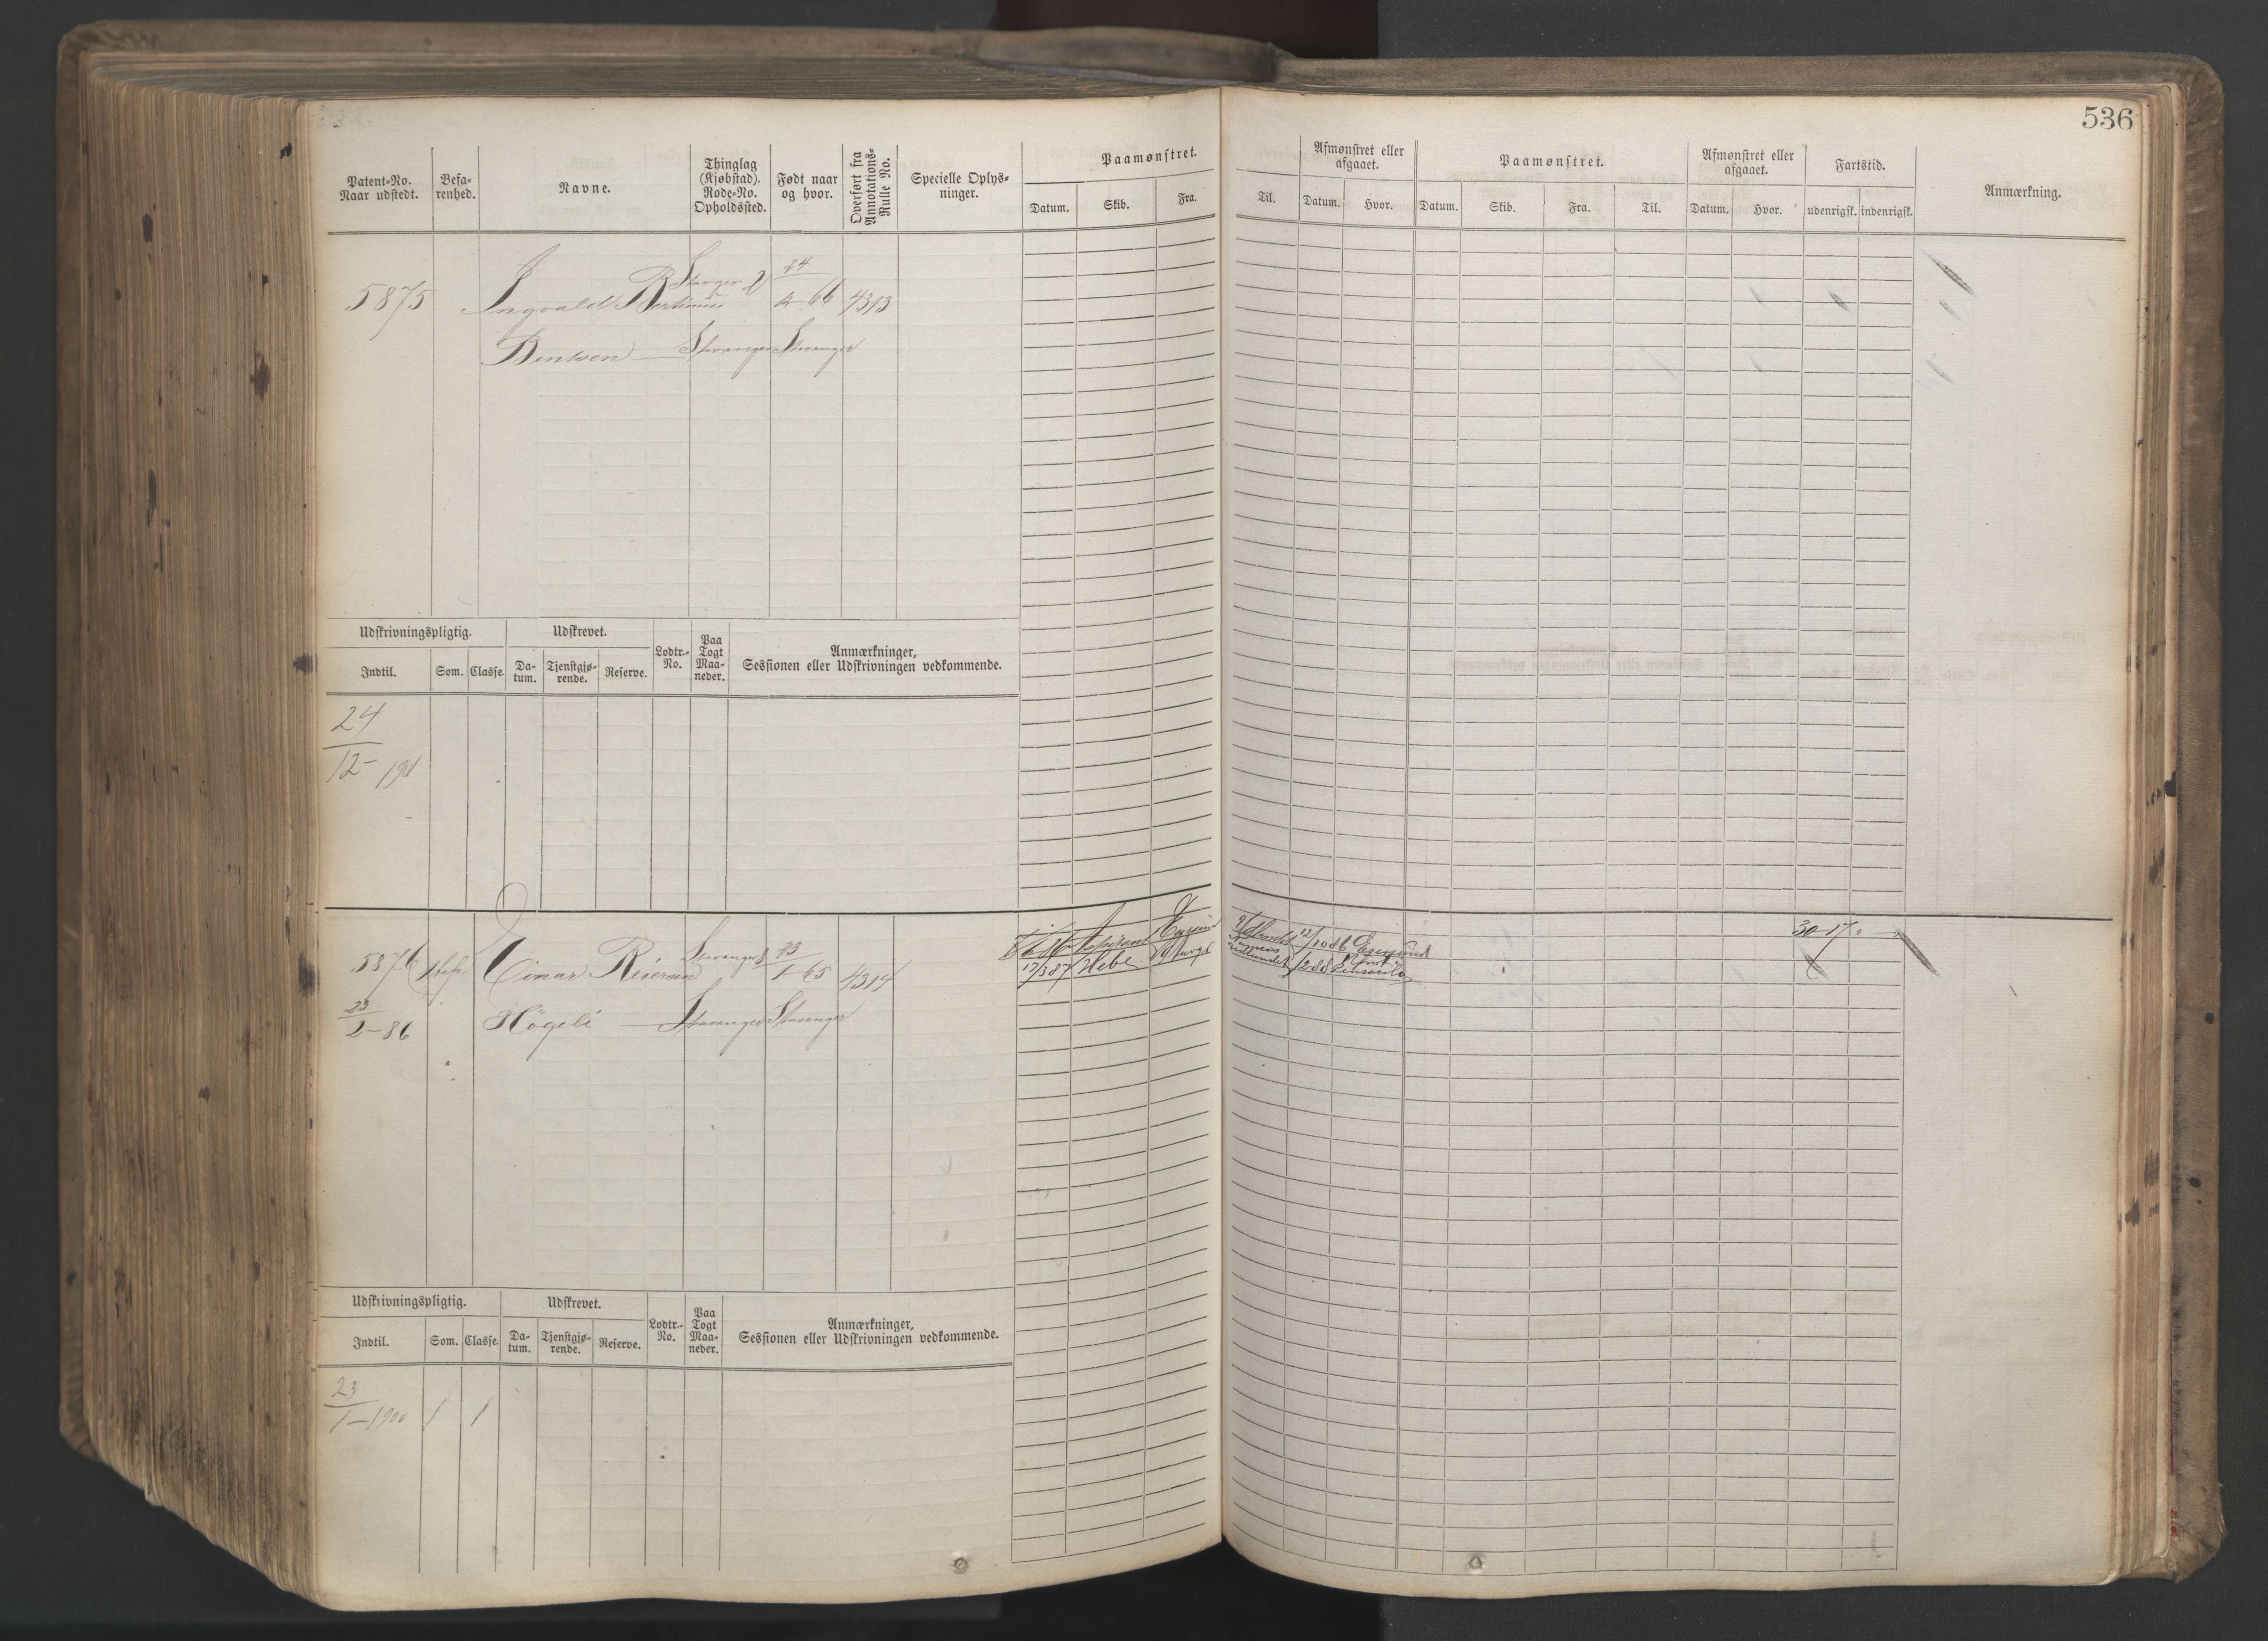 536
Patent-No. Naar udstedt.
Befa-renhed.
Navne.
Thinglag (Kjøbstad). Rode-No. Opholdssted.
Født naar og hvor.
Overført fra Annotations-Rulle No.
Specielle Oplys-ninger.
Paamønstret.
Datum. Skib. Fra.
Til.
Afmønstret eller afgaaet.
Datum. Hvor.
Paamønstret.
Datum. Skib. Fra. Til.
Afmønstret eller afgaaet.
Datum. Hvor.
Fartstid.
udenrigsk. indenrigsk.
Anmærkning.
5875 Ingvald Bertinus Stavanger 2 24/12 66 4313
Bentsen Stavanger Stavanger
Udskrivningspligtig.
Indtil. Som. Classe.
Udskrevet.
Da-tum. Tjenstgjø-rende. Reserve.
Lodtr.-No.
Paa Togt Maa-neder.
Anmærkninger,
Sessionen eller Udskrivningen vedkommende.
24
12- 1901
5876 Einar Reiersen Stavanger 23/1 65 4314
23/2-86 Høgeli Stavanger Stavanger
86 12/10 86 Egersund 30-17
17/3 87 Hebe
Udskrivningspligtig.
Indtil. Som. Classe.
Udskrevet.
Da-tum. Tjenstgjø-rende. Reserve.
Lodtr.-No.
Paa Togt Maa-neder.
Anmærkninger,
Sessionen eller Udskrivningen vedkommende.
23
1-1900 1 1